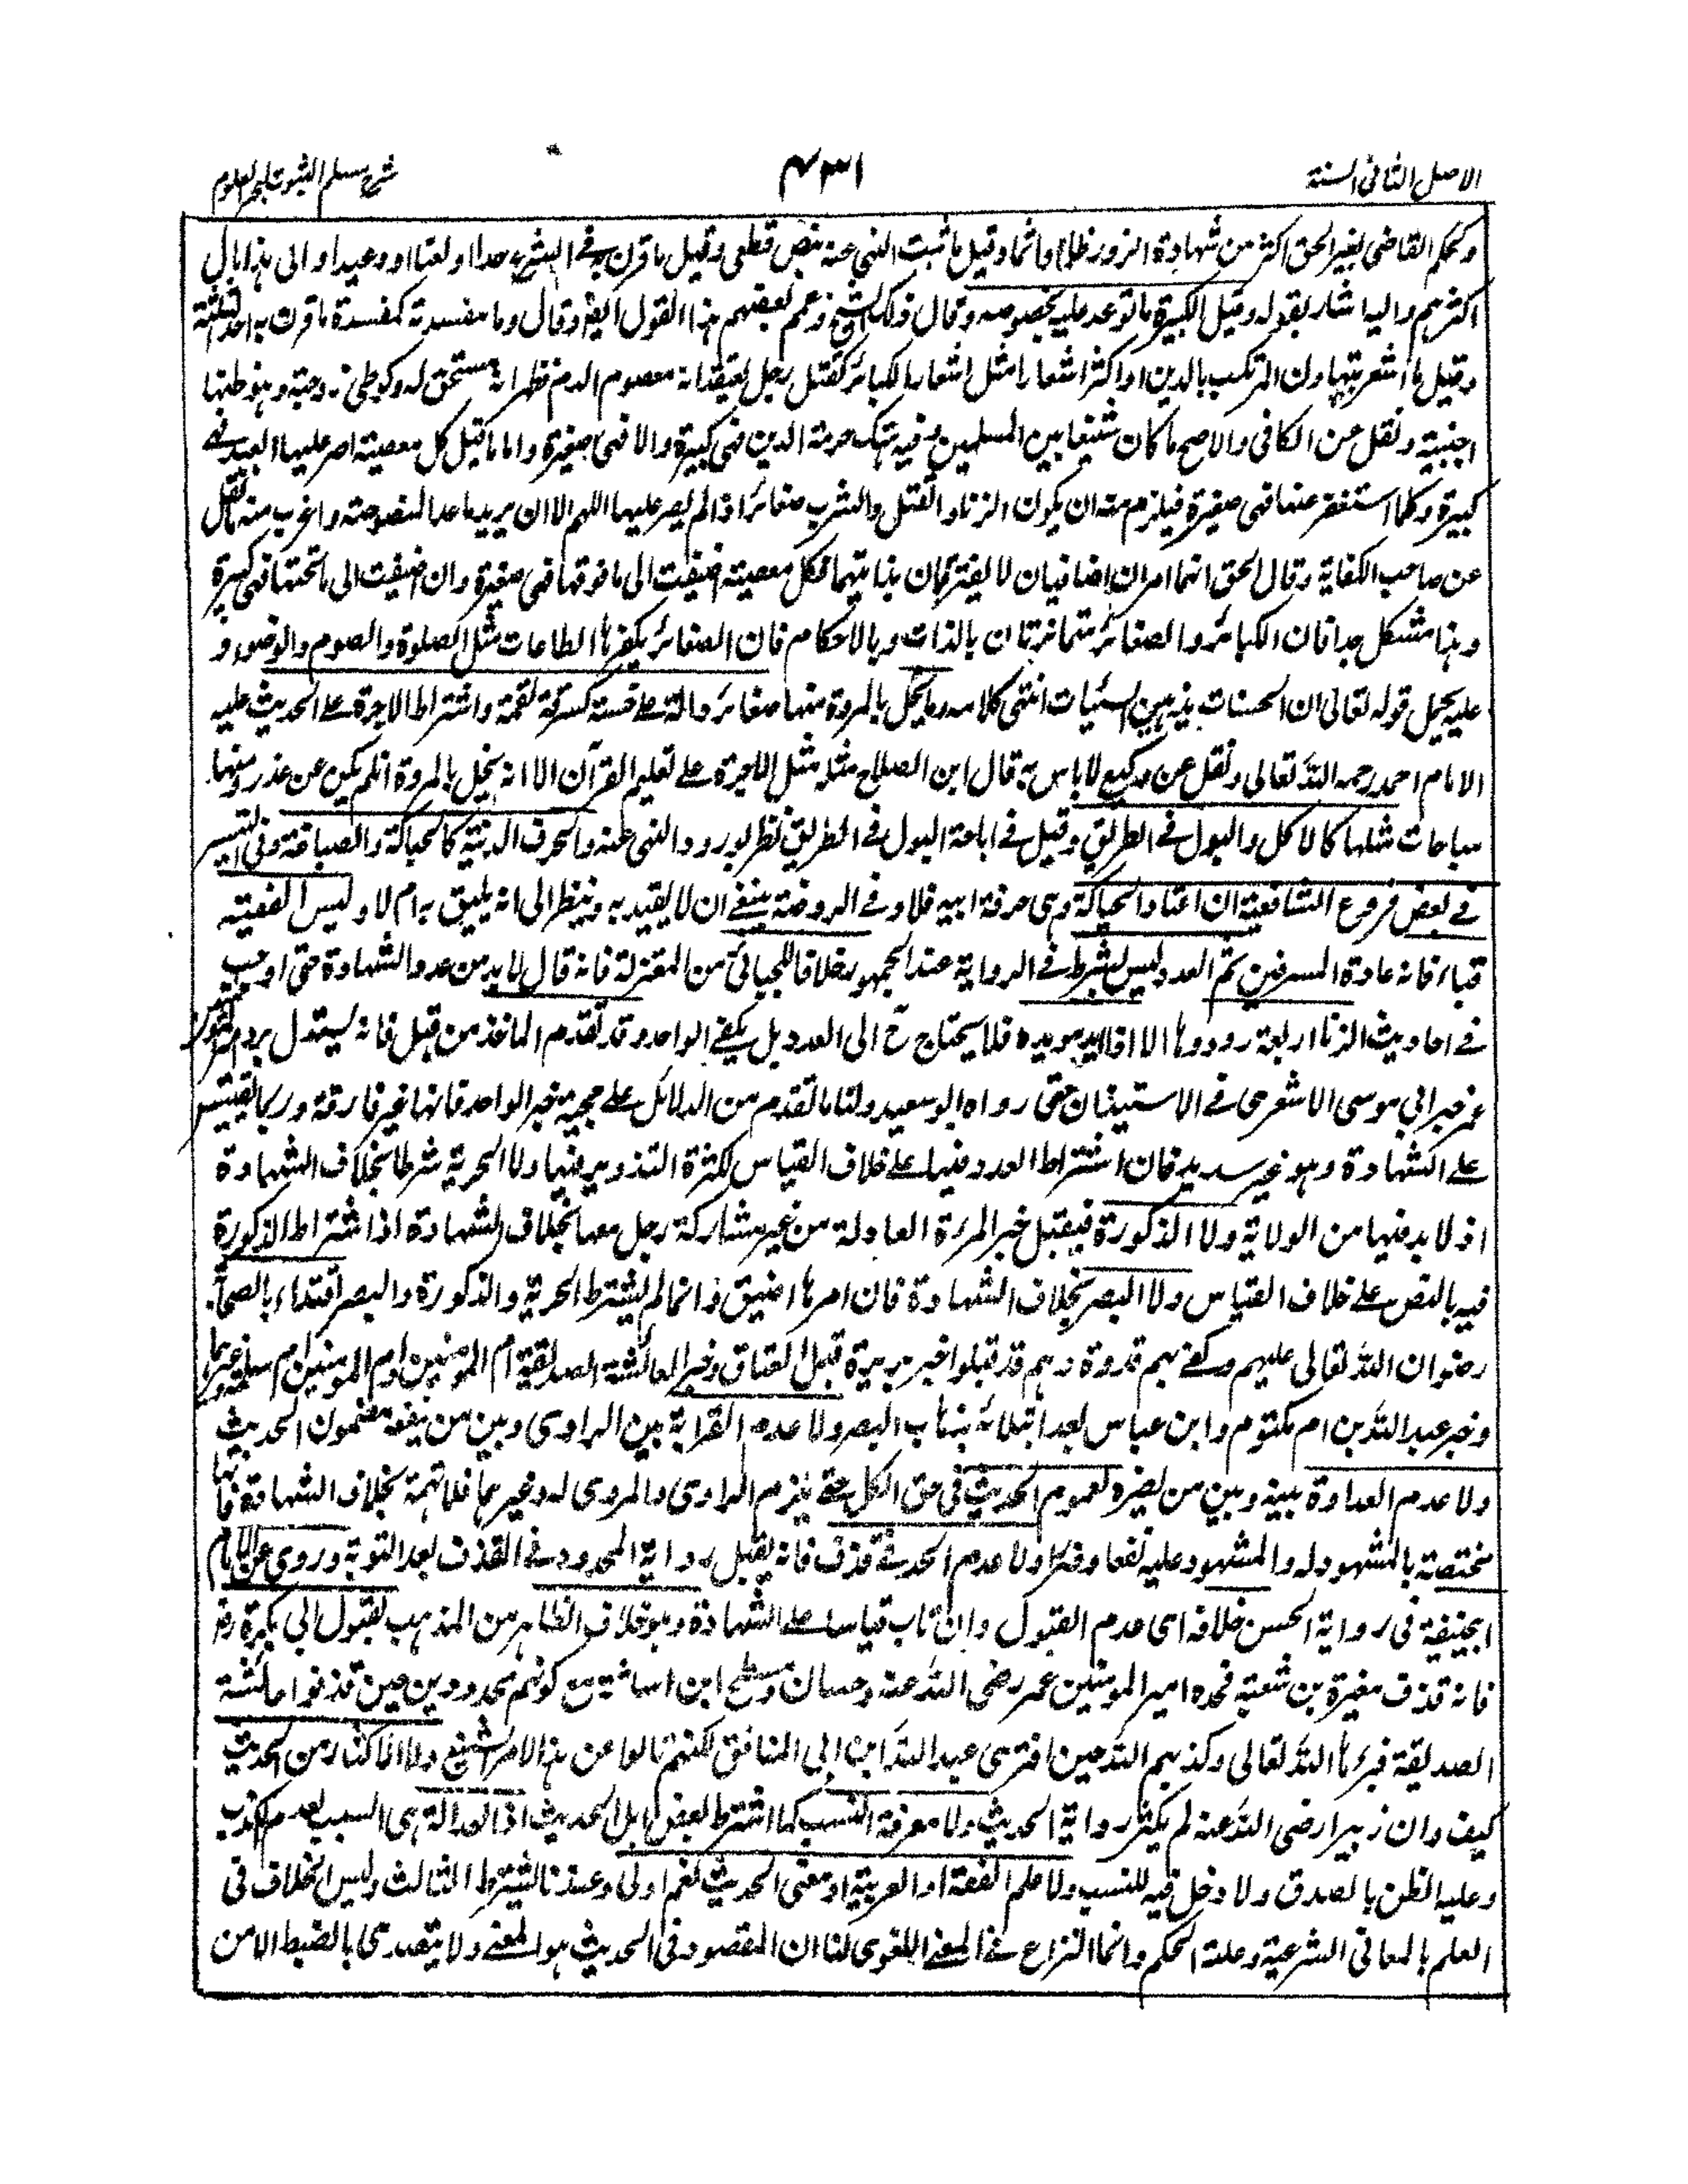 الاصل الثانى السنة
۴۳۱
شرح مسلم الثبوت لبحر العلوم
وكحكم القاضى بغير الحق اكثر من شهادة الزور ظلما واثما وقيل ما ثبت النهى عنه بنص قطعى وقيل ما قرن به فى الشرع حدا او لعنا او وعيدا والى هذا مال
اكثرهم واليه اشار بقوله وقيل الكبيرة ما توعد عليه بخصوصه وقال ذلك الشيخ وعمم بعضهم هذا القول ايضا وقال وما مفسدته كمفسدة ما قرن به احد الثلثة
وقيل ما اشعر بتهاون المرتكب بالدين او اكثر اشعارا مثل اشعار الكبائر كقتل رجل يعتقد انه معصوم الدم فظهر انه مستحق له وكوطى زوجته وهو يظنها
اجنبية ونقل عن الكافى والاصح ما كان شنيعا بين المسلمين وفيه هتك حرمة الدين فهى كبيرة والا فهى صغيرة واما ما قيل كل معصية اصر عليها العبد فهى
كبيرة وكلما استغفر عنها فهى صغيرة فيلزم منه ان يكون الزنا والقتل والشرب صغائر اذا لم يصر عليها اللهم الا ان يريد ما عدا المنصوصة واغرب منه ما نقل
عن صاحب الكفاية وقال الحق انهما امران اضافيان لا يفترقان بذاتيهما فكل معصية اضيفت الى ما فوقها فهى صغيرة وان اضيفت الى ما تحتها فهى كبيرة
وهذا مشكل جدا فان الكبائر والصغائر متمائزتان بالذات وبالاحكام فان الصغائر يكفرها الطاعات مثل الصلوة والصوم والوضوء و
عليه يحمل قوله تعالى ان الحسنات يذهبن السيئات انتهى كلامه وما يخل بالمروة منها صغائر دالة على خسة كسرقة لقمة واشتراط الاجرة على الحديث عليه
الامام احمد رحمه الله تعالى ونقل عن وكيع لا باس به قال ابن الصلاح مثله مثل الاجرة على تعليم القرآن الا انه يخل بالمروة ان لم يكن عن عذر ومنها
مباحات مثلها كالاكل والبول فى الطريق وقيل فى اباحة البول فى الطريق نظر لورود النهى عنه والحرف الدنية كالحياكة والصباغة وفى التيسير
فى بعض فروع الشافعية ان اعتاد الحياكة وهى حرفة ابيه فلا وفى الروضة ينبغى ان لا يقيد به وينظر الى انه يليق به ام لا ولبس الفقيه
قباء فانه عادة المسرفين ثم العدد ليس بشرط فى الرواية عند الجمهور خلافا للجبائى من المعتزلة فانه قال لا بد من عدد الشهادة حتى اوجب
فى احاديث الزنا اربعة رووها الا اذا ايد بمويد فلا يحتاج ح الى العدد بل يكفى الواحد وقد تقدم الماخذ من قبل فانه يستدل برد امير المؤمنين
عمر خبر ابى موسى الاشعرى فى الاستيذان حتى رواه ابو سعيد ولنا ما تقدم من الدلائل على حجية خبر الواحد فانها غير فارقة وربما يقيس
على الشهادة وهو غير سديد فان اشتراط العدد فيها على خلاف القياس لكثرة التزوير فيها ولا الحرية شرطا بخلاف الشهادة
اذ لا بد فيها من الولاية ولا الذكورة فيقبل خبر المرءة العادلة من غير مشاركة رجل معها بخلاف الشهادة اذ اشتراط الذكورة
فيه بالنص على خلاف القياس ولا البصر بخلاف الشهادة فان امرها اضيق وانما لم يشترط الحرية والذكورة والبصر اقتداء بالصحابة
رضوان الله تعالى عليهم وكفى بهم قدوة وهم قد قبلوا خبر بريرة قبل العتاق وخبر العائشة الصديقة ام المومنين وام المومنين ام سلمة وغيرهما
وخبر عبد الله بن ام مكتوم وابن عباس بعد ابتلائه بذهاب البصر ولا عدم القرابة بين الراوى وبين من ينفعه مضمون الحديث
ولا عدم العداوة بينه وبين من يضره لعموم الحديث فى حق الكل حتى يلزم الراوى والمروى له وغيرهما فلا تهمة بخلاف الشهادة فانها
مختصة بالمشهود له والمشهود عليه نفعا وضرا ولا عدم الحد فى قذف فانه يقبل رواية المحدود فى القذف بعد التوبة وروى عن الامام
ابيحنيفة فى رواية الحسن خلافه اى عدم القبول وان تاب قياسا على الشهادة وهو خلاف الظاهر من المذهب لقبول ابى بكرة رض
فانه قذف مغيرة بن شعبة فحده امير المومنين عمر رضى الله عنه وحسان ومسطح ابن اساثة مع كونهم محدودين حين قذفوا عائشة
الصديقة فبرئها الله تعالى وكذبهم الله حين افترى عبد الله ابن ابى المنافق لكنهم تابوا عن هذا الامر الشنيع ولا الاكثار من الحديث
كيف وان زبيرا رضى الله عنه لم يكثر رواية الحديث ولا معرفة النسب كما اشترط بعض اهل الحديث اذ العدالة هى السبب لعدم الكذب
وعليه الظن بالصدق ولا دخل فيه للنسب ولا علم الفقه او العربية او معنى الحديث نعم اولى وعندنا لشترط الثالث وليس الخلاف فى
العلم بالمعانى الشرعية وعلة الحكم وانما النزاع فى المعنى اللغوى لنا ان المقصود فى الحديث هو المعنى ولا يتصدى بالضبط الا من